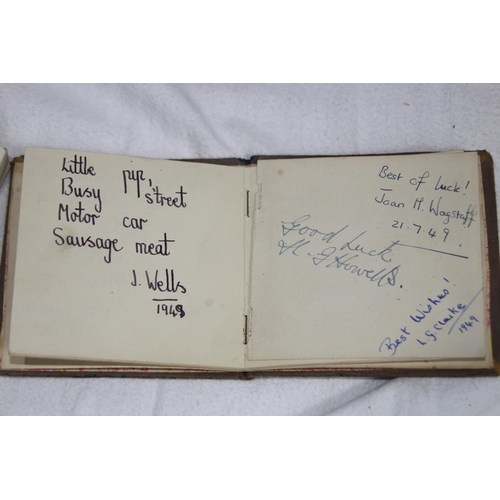 Little pip,
Busy street
Motor car
Sausage meat
J. Wells
1949
Best of Luck!
Joan M. Wagstaff
21.7.49.
Good Luck
G Howells.
Best Wishes!
L. G. Clarke
1949